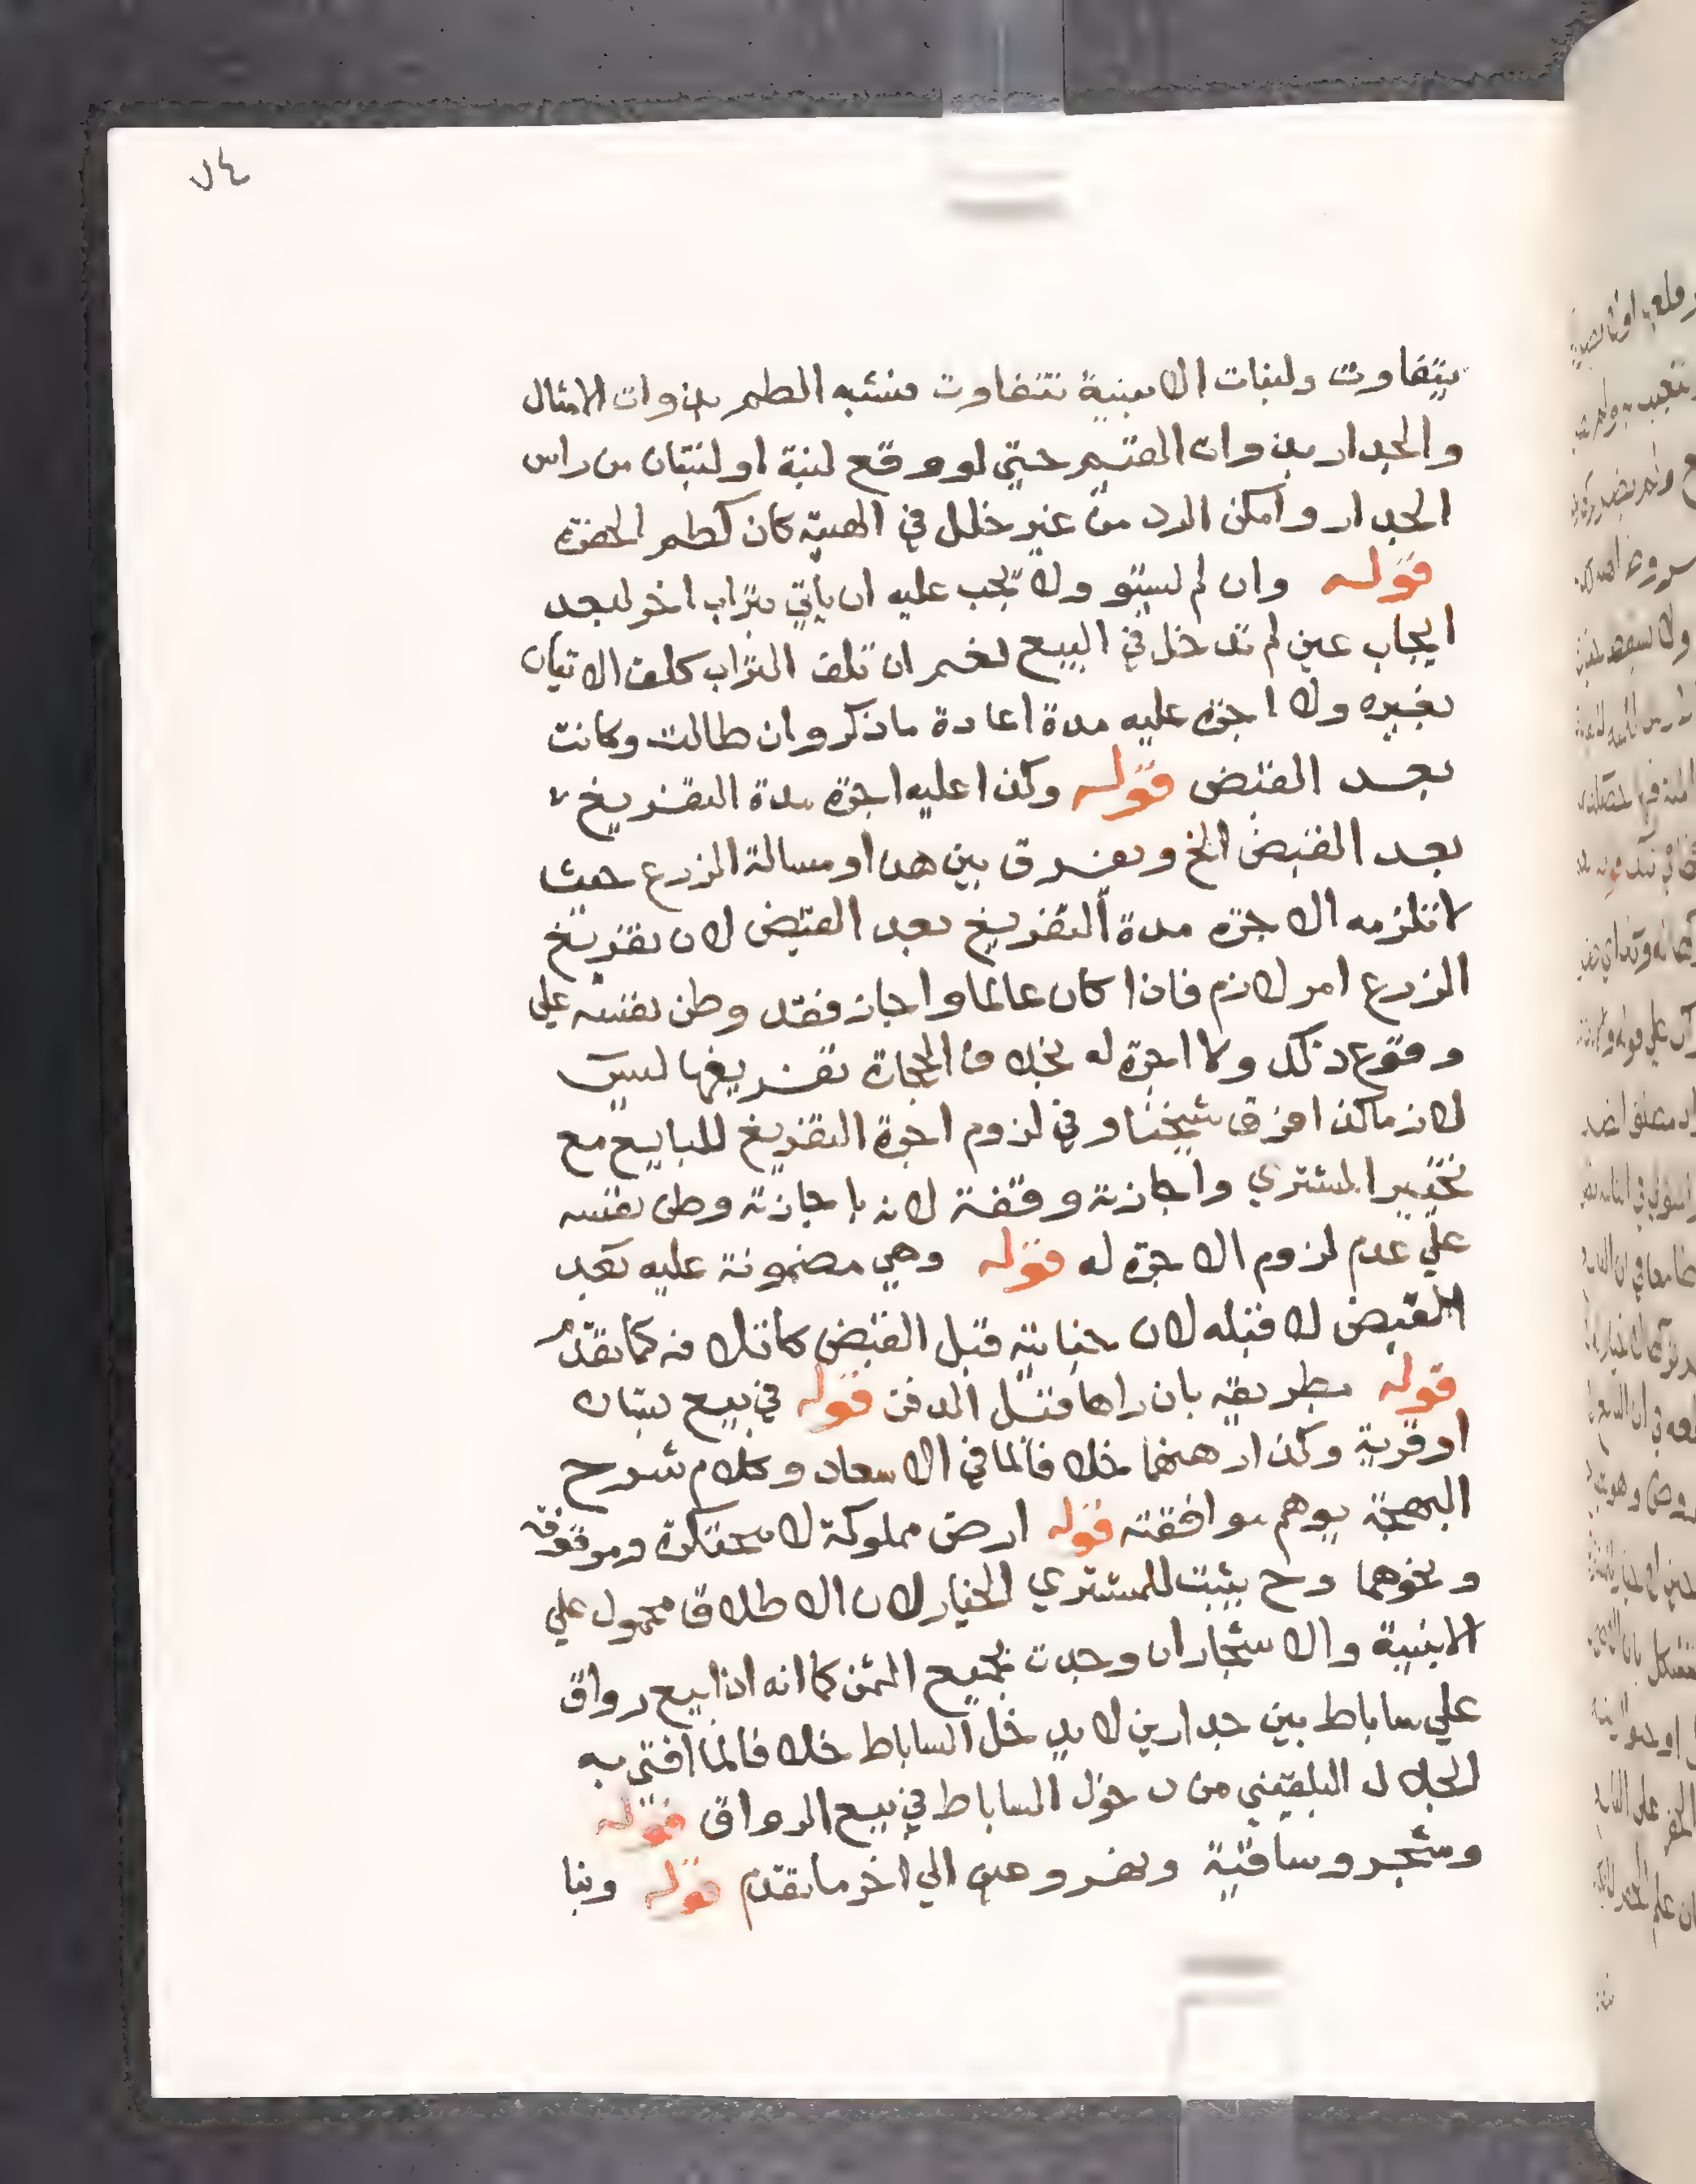 ٧٤
يتفاوت ولبنات الابنية تتفاوت فشبه الطم بذوات الامثال
والجدار بذوات المتقوم حتي لو وقع لبنة او لبنتان من راس
الجدار وامكن الرد من غير خلل في الهيئة كان كطم الحفرة
قوله وان لم يستو ولا يجب عليه ان ياتي بتراب اخر لبعد
ايجاب عين لم تدخل في البيع نعم ان تلف التراب كلف الاتيان
بغيره ولا اجرة عليه مدة اعادة ما ذكر وان طالت وكانت
بعد القبض قوله وكذا عليه اجرة مدة التفريغ
بعد القبض الخ ويفرق بين هذا ومسالة الزرع حيث
لا تلزمه الاجرة مدة التفريغ بعد القبض لان تفريغ
الزرع امر لازم فاذا كان عالما واجاز فقد وطن نفسه علي
وقوع ذلك ولا اجرة له بخلاف الحجارة تفريغها ليس
لازما كذا فرق شيخنا وفي لزوم اجرة التفريغ للبايع مع
تخيير المشتري واجازته وقفة لانه باجازته وطن نفسه
علي عدم لزوم الاجرة له قوله وهي مضمونة عليه بعد
القبض لا قبله لان جنايته قبل القبض كاتلافه كما تقدم
قوله بطريقه بان راها قبل الدفن قوله في بيع بستان
او قرية وكذا رهنهما خلافا لما في الاسعاد وكلام شرح
البهجة يوهم موافقته قوله ارض مملوكة لا محتكرة وموقوفة
ونحوهما وح يثبت للمشتري الخيار لان الاطلاق محمول علي
الابنية والاشجار ان وجدت بجميع الثمن كما انه اذا بيع رواق
علي ساباط بين جدارين لا يدخل الساباط خلافا لما افتي به
الجلال البلقيني من دخول الساباط في بيع الرواق قوله
وشجر وساقية وبفروعين الي اخر ما تقدم قوله وبنا